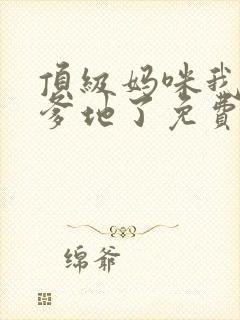 頂級妈咪我
爹地了免費
绵爺